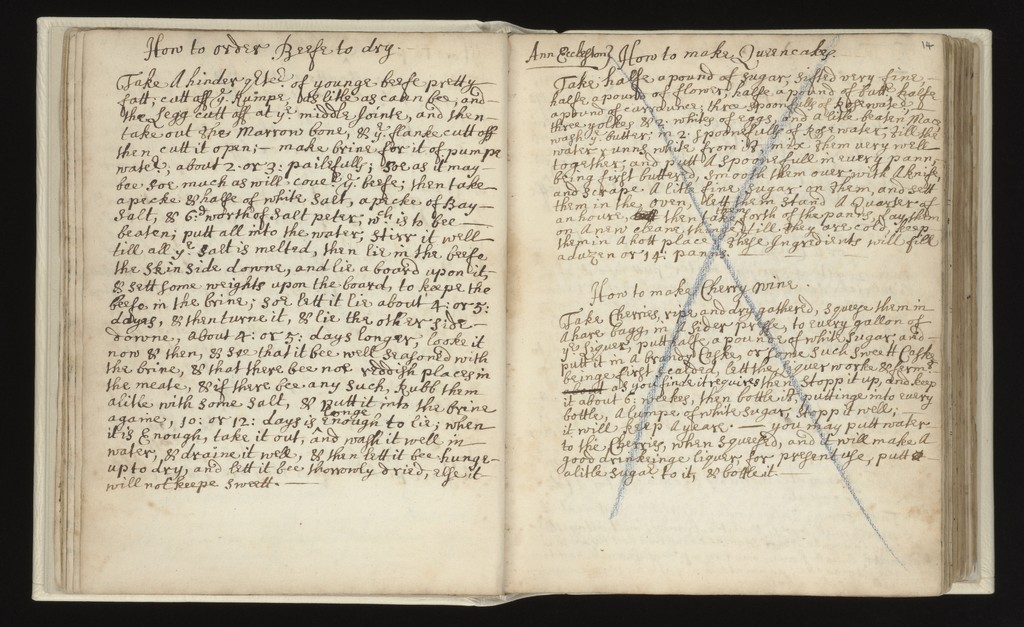 How to order Beefe to dry.
Take A hinder qter: of younge beefe pretty
fatt, cutt off ye Rumpe, as litle as cann bee, and
the Legg cutt off at ye middle Jointe, and then
take out the Marrow bone, & ye flanke cutt off
then cutt it open; make brine for it of pumpe
water, about 2 or 3: pailefulls; soe as it may
bee soe much as will cover ye beefe; then take
a pecke & halfe of white Salt, a pecke of Bay
Salt, & 6d worth of Salt peter; wch is to bee
beaten; putt all into the water; stirr it well
till all ye Salt is melted, then lie in the beefe
the skin side downe, and lie a board upon it,
& sett some weights upon the board, to keepe the
beefe in the brine; soe lett it lie about 4: or 5:
dayes, & then turne it, & lie the other side
downe, about 4: or 5: days longer, looke it
now & then, & see that it bee well seasoned with
the brine, & that there bee noe reddish places in
the meate, & if there bee any such, Rubb them
alitle with some Salt, & putt it into the brine
againe, 10: or 12: days is longe enough to lie; when
it is Enough, take it out, and wash it well in
water, & draine it well, & then lett it bee hunge
up to dry, and lett it bee thorowly dried, else it
will not keepe Sweett.
14
Ann Eccleston How to make Queencakes.
Take halfe a pound of Sugar, sifted very fine
halfe a pound of flower, halfe a pound of butt halfe
a pound of currance; three spoonfulls of Rosewater
three yolkes & 2: whites of eggs, and a litle beaten Mac
wash ye butter in 2: spoonefulls of Rosewater, till the
water runns white from it mix them very well
together, and putt A spoone full in every pann,
being first buttered, smooth them over with A knife,
and scrape A litle fine Sugar on them, and sett
them in the oven, lett them stand A Quarter of
an houre, then take them forth of the panns, Lay them
on A new cleane till they are cold, keep
them in A hott place these Ingredients will fill
a duzen or 14: panns.
How to make Cherry wine.
Take Cherries, ripe and dry gathered, squeeze them in
A hare bagg, in A Sider presse, to every gallon of
ye liquer, putt halfe A pound of white Sugar, and
putt it in a brandy Caske, or some such Sweett Caske
beinge first scalded, lett the liquer worke
as you finde it requires then stopp it up, and keep
it about 6: weekes, then bottle it, puttinge into every
bottle, A lumpe of white Sugar, stopp it well;
it will keep A yeare. — you may putt water
to the Cherries, when squeesed, and it will make A
good drinkeinge liquer, for present use, putt
alitle Sugar to it, & bottle it.